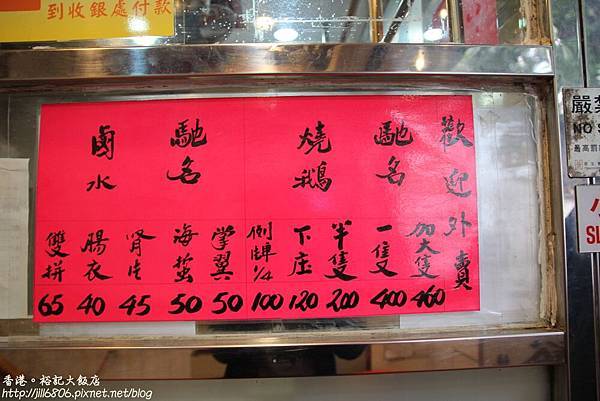 到收銀處付款
歡迎外賣
馳名
燒鵝
加大隻 460
一隻 400
半隻 200
下庄 120
側陣¼ 100
馳名
鹵水
掌翼 50
海蜇 50
腎片 45
腸衣 40
雙拼 65
嚴禁
NO S
最高罰
小
SL
香港。裕記大飯店
http://jill6806.pixnet.net/blog